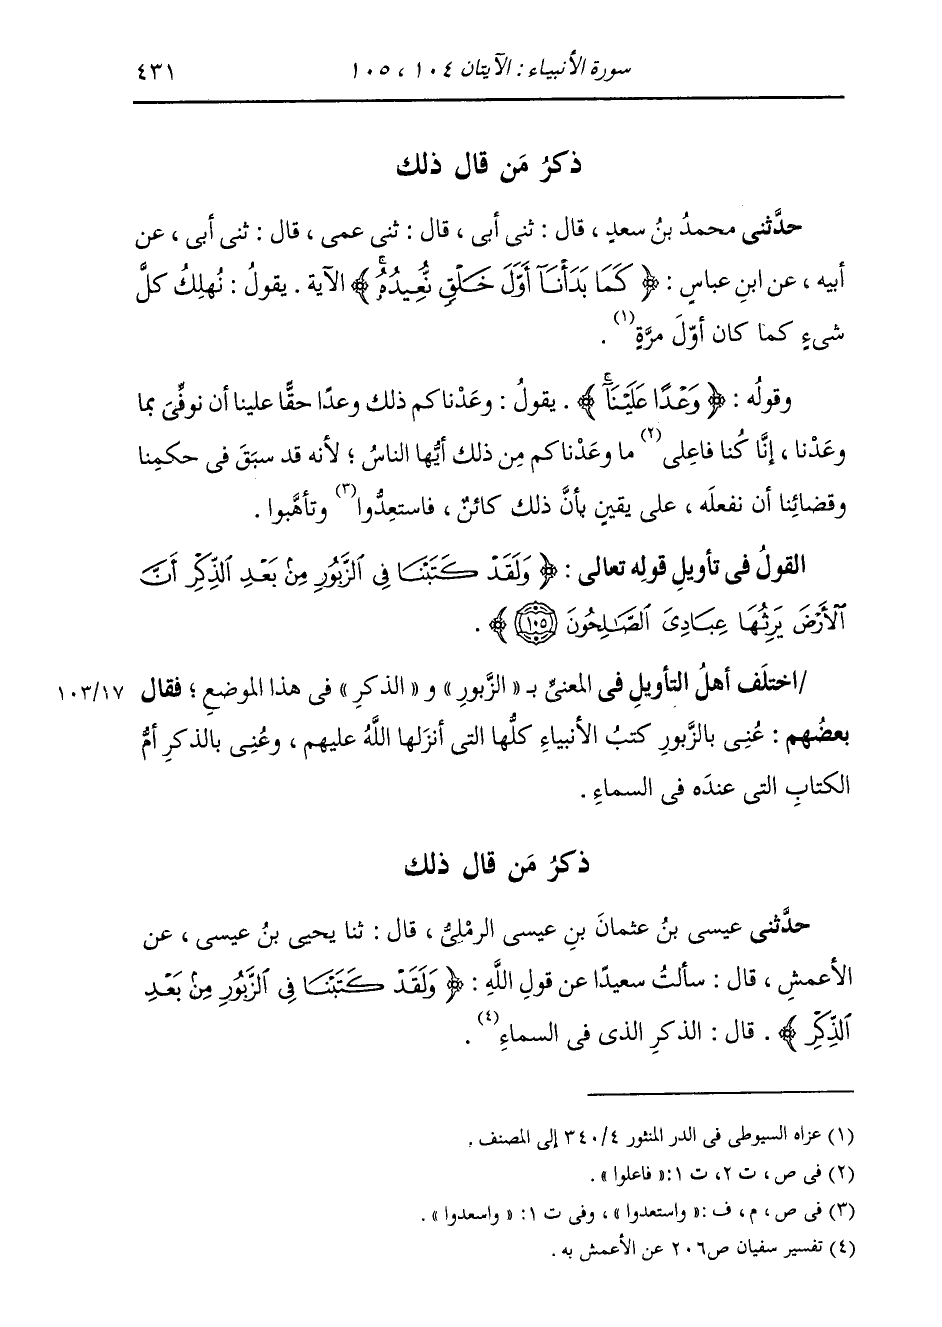 سورة الأنبياء : الآيتان ١٠٤ ، ١٠٥ ٤٣١
ذكرُ مَن قال ذلك
حدَّثنى محمدُ بنُ سعدٍ ، قال : ثنى أبى ، قال : ثنى عمى ، قال : ثنى أبى ، عن
أبيه ، عن ابنِ عباسٍ : ﴿ كَمَا بَدَأْنَآ أَوَّلَ خَلْقٍ نُّعِيدُهُۥۚ ﴾ الآية . يقولُ : نُهلِكُ كلَّ
شىءٍ كما كان أوّلَ مرَّةٍ(١) .
وقولُه : ﴿ وَعْدًا عَلَيْنَآۚ ﴾ . يقولُ : وعَدْناكم ذلك وعدًا حقًّا علينا أن نوفِّىَ بما
وعَدْنا ، إنَّا كُنا فاعِلى(٢) ما وعَدْناكم مِن ذلك أيُّها الناسُ ؛ لأنه قد سبَقَ فى حكمِنا
وقضائِنا أن نفعلَه ، على يقينٍ بأنَّ ذلك كائنٌ ، فاستعِدُّوا(٣) وتأهَّبوا .
القولُ فى تأويلِ قولِه تعالى : ﴿ وَلَقَدْ كَتَبْنَا فِى ٱلزَّبُورِ مِنۢ بَعْدِ ٱلذِّكْرِ أَنَّ
ٱلْأَرْضَ يَرِثُهَا عِبَادِىَ ٱلصَّٰلِحُونَ ١٠٥ ﴾ .
/اختلَف أهلُ التأويلِ فى المعنىِّ بـ « الزَّبورِ » و « الذكرِ » فى هذا الموضعِ ؛ فقال ١٠٣/١٧
بعضُهم : عُنِى بالزَّبورِ كتبُ الأنبياءِ كلُّها التى أنزَلها اللَّهُ عليهم ، وعُنِى بالذكرِ أمُّ
الكتابِ التى عندَه فى السماءِ .
ذكرُ مَن قال ذلك
حدَّثنى عيسى بنُ عثمانَ بنِ عيسى الرمْلِىُّ ، قال : ثنا يحيى بنُ عيسى ، عن
الأعمشِ ، قال : سألتُ سعيدًا عن قولِ اللَّهِ : ﴿ وَلَقَدْ كَتَبْنَا فِى ٱلزَّبُورِ مِنۢ بَعْدِ
ٱلذِّكْرِ ﴾ . قال : الذكرِ الذى فى السماءِ(٤) .
(١) عزاه السيوطى فى الدر المنثور ٣٤٠/٤ إلى المصنف .
(٢) فى ص ، ت ٢، ت ١: « فاعلوا » .
(٣) فى ص ، م ، ف : « واستعدوا » ، وفى ت ١: « واسعدوا » .
(٤) تفسير سفيان ص٢٠٦ عن الأعمش به .